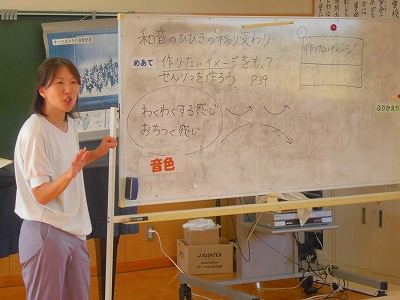 和音のひびきの移り変わり
めあて 作りたいイメージをもって
せんりつを作ろう。 P39
① 作りたいイメージ
わくわくする感じ
おちつく感じ
音色
ふりかえり
オーケストラの演奏配置